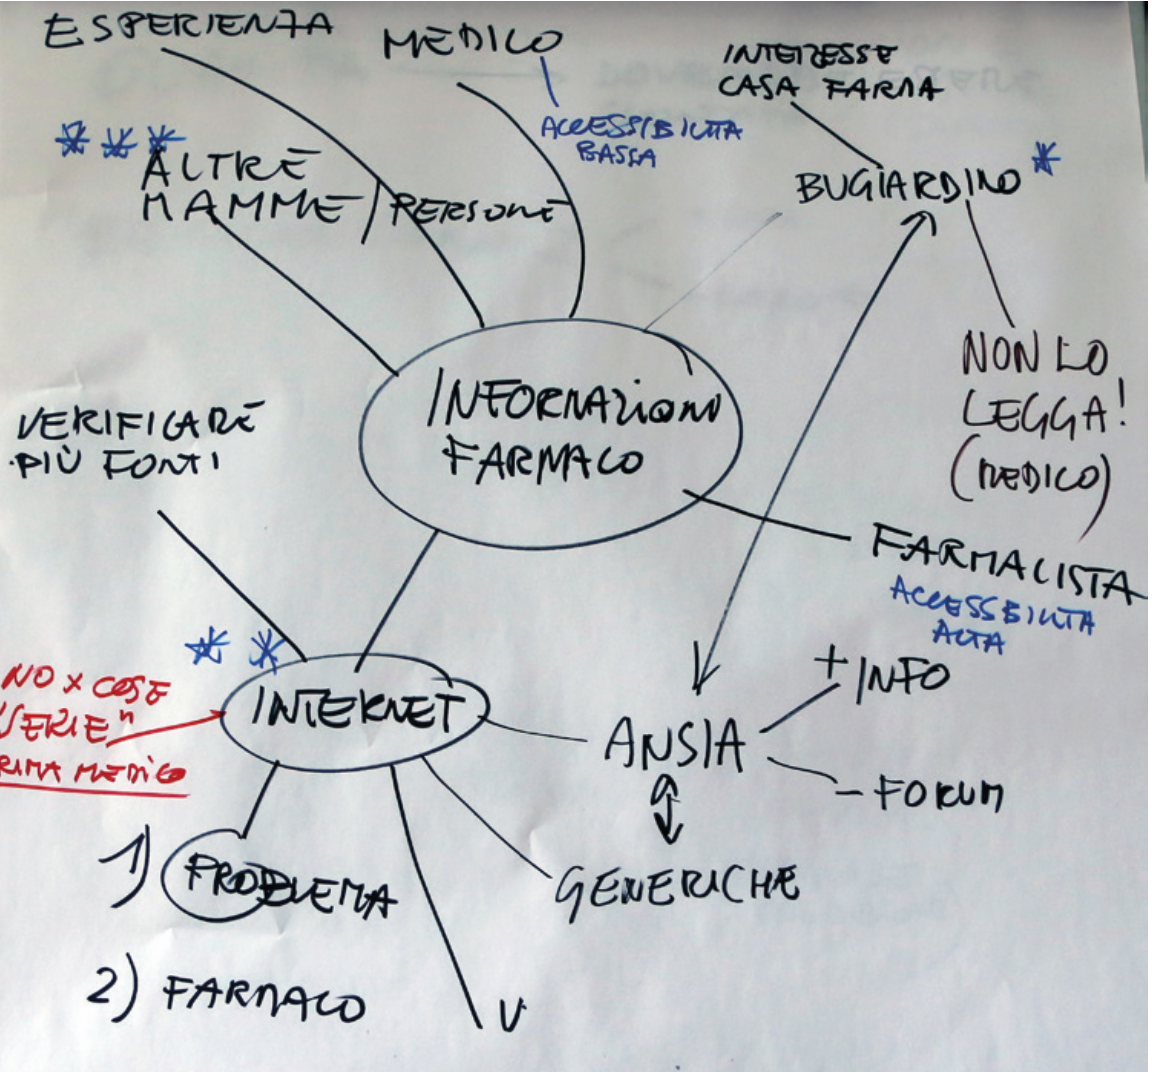 ESPERIENZA
MEDICO
INTERESSE
CASA FARMA
ACCESSIBILITA
BASSA
*
***
ALTRE
MAMME / PERSONE
BUGIARDINO
NON LO
LEGGA!
(MEDICO)
INFORMAZIONI
FARMACO
VERIFICARE
PIÙ FONTI
FARMACISTA
ACCESSIBILITA
ALTA
**
NO x COSE
"SERIE"
PRIMA MEDICO
INTERNET
ANSIA
+ INFO
- FORUM
GENERICHE
1) PROBLEMA
2) FARMACO